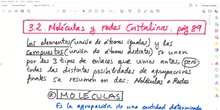 3.2. Moléculas y redes Cristalinas. pág 89
Los elementos (unión de átomos iguales) y los
Compuestos (unión de átomos distintos) se unen
por los 3 tipos de enlaces que vimos antes, pero
todas las distintas posibilidades de agrupaciones
finales se resumen en dos: Moléculas o Redes
a) MOLÉCULAS
Es la agrupación de una cantidad determinada